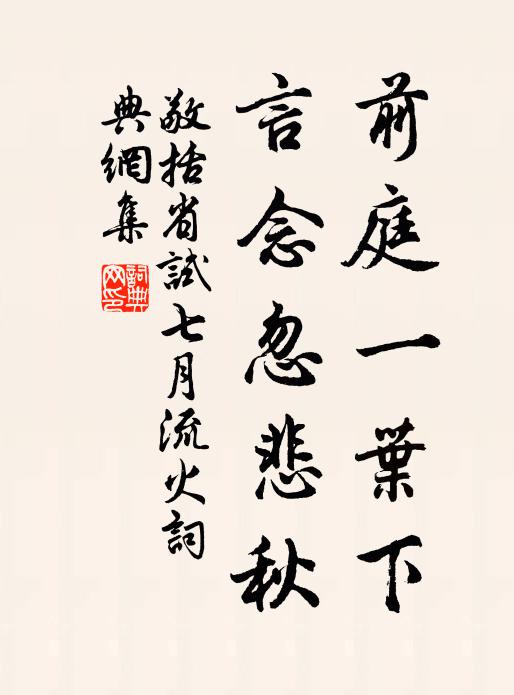 前庭一葉下
言念忽悲秋
敬括省試七月流火詞
典網集
詞典
网印